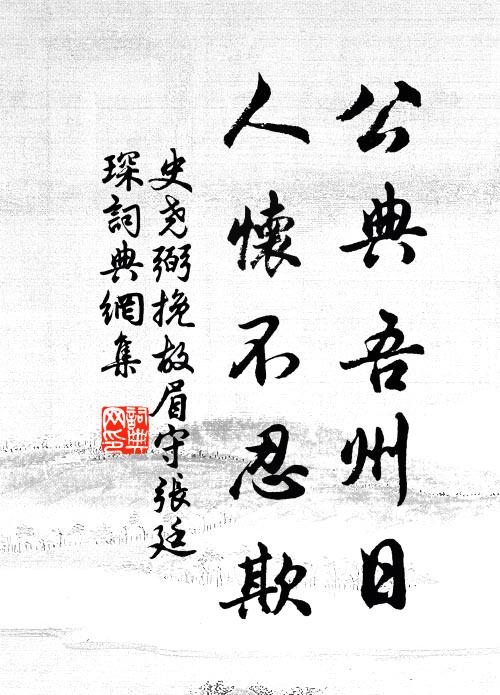 公典吾州日
人懷不忍欺
史尧弼挽故眉守張廷
琛詞典網集
詞典网印